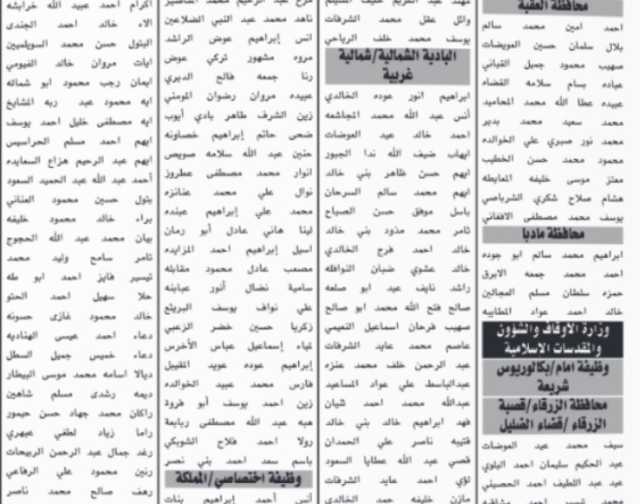 محافظة العقبة
احمد امين محمد سالم
بلال سلمان حسين العويضات
صهيب محمود جميل القباني
عباده بسام سلامه القضاه
عبيده عطا الله محمد المحاميد
محمد سعيد محمد بدير
محمد نور صبري علي الخوالده
محمود محمد حسن الخطيب
معتز موسى خليفه المعايطه
هشام صلاح شكري الشرباصي
يوسف محمد مصطفى الافغاني
محافظة مادبا
ابراهيم محمد سالم ابو جوده
احمد محمد جمعه الابرق
حمزه سلطان مسلم العجالين
خالد احمد عواد المطايبه
وزارة الأوقاف والشؤون
والمقدسات الاسلامية
وظيفة امام/بكالوريوس
شريعة
محافظة الزرقاء/قصبة
الزرقاء /قضاء الضليل
سيف محمد عيد العوضات
عبد الحكيم سليمان احمد البلوي
عبد عبد اللطيف احمد الحسيني
وائل عقل محمد الشرفات
يوسف محمد خلف الرياحي
البادية الشمالية/شمالية
غربية
ابراهيم انور عوده الخالدي
أنس عبد الله محمد المجاشعه
احمد خالد عيد العوضات
ايهاب ضيف الله ندا الجبور
ايهم حسن ظاهر بني خالد
ايهم محمد سالم السرحان
باسل موفق حسن الصباح
ثامر محمد مذود بني خالد
خالد احمد فرج الخالدي
خالد عشوي ضبان النوافله
راشد نايف عيد ابو صلعه
صالح فتح الله محمد ابو صالح
صهيب فرحان اسماعيل النعيمي
عاصم محمد عايد الشرفات
عبد الرحمن خلف محمد عنزه
عبدالباسط علي عواد المساعيد
عبدالله محمد احمد شيان
فهد ابراهيم خالد بني خالد
قتيبه ناصر علي الحمدان
قصي عبد الله عطايا السعود
لؤي احمد عايد الشرفات
مازن خليفه حمد الخالدي
ناهد محمد عبد النبي الضلاعين
انس إبراهيم عوض الراشد
مروه مشهور تركي عوض
رنا جمعه فالح الديري
عبيده مروان رضوان المومني
زين الشرف طاهر بادي أيوب
ضحى حاتم إبراهيم خصاونه
حنين عبد الله سلامه صويص
انوار محمد مصطفى عطروز
نوال علي محمد عنانزه
محمد علي إبراهيم عبنده
لينا هاني عادل أبو رمان
اسيل إبراهيم احمد المزايده
مصعب عادل محمود مقابله
سامية نضال أنور عبابنه
علي نواف يوسف البريتع
زكريا حسين خضر الزعبي
لمياء إسماعيل عباس الأخرس
إبراهيم عوده عويد المقبيل
فارس محمد عبيد الخوالده
زين احمد يوسف أبو فرود
هبه عبد الله مصطفى ربابعة
رولا احمد فلاح الشوبكي
باسم سعد احمد بني نصر
وظيفة اختصاصي/المملكة
أنس أحمد إبراهيم بنات
اكرام احمد عبيد الله خرابشه
الاء خالد احمد الجندي
البتول حسن محمد السويلميين
ايات مروان خالد الفيومي
ايمان رجب محمود ابو شماله
ايه محمود عبد ربه المشايخ
ايه مصطفى خليل احمد يوسف
ايهم احمد مسلم الحراسيس
ايهم عبد الرحيم هزاع السعايده
أحمد عبد الله عبد الحميد السعود
بتول حسين محمود العناني
براء خالد محمود خليفه
بيان محمد عبد الله الحجوج
تامر سامح وليد محمد
تيسير فايز احمد ابو طه
حلا سهيل احمد الحتو
خالد محمود غازي حسونه
دعاء احمد عيسى الهناديه
دعاء خميس جميل السطل
ديالا اسامه محمد موسى البيطار
ديمه رشدي مسلم شاهين
راكان محمد جهاد حسن حيمور
راما زياد لطفي عبهري
رغد جمال عبد الرحمن الربيحات
رنين محمود علي الرفاعي
رهف صالح محمد ناصر